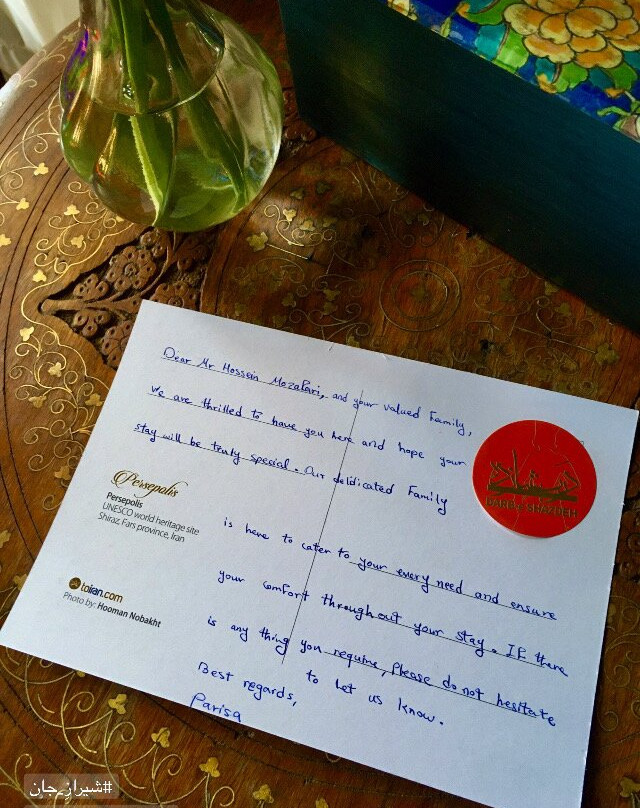 Dear Mr Hossein Mozafari, and your valued Family,
we are thrilled to have you here and hope your
stay will be truly special. Our delidicated Family
is here to cater to your every need and ensure
your comfort throughout your stay. IF there
is any thing you require, please do not hesitate
to let us know.
Best regards,
Parisa
Persepolis
Persepolis
UNESCO world heritage site
Shiraz, Fars province, Iran
toiran.com
Photo by: Hooman Nobakht
DARBE SHAZDEH
#شیراز_جان